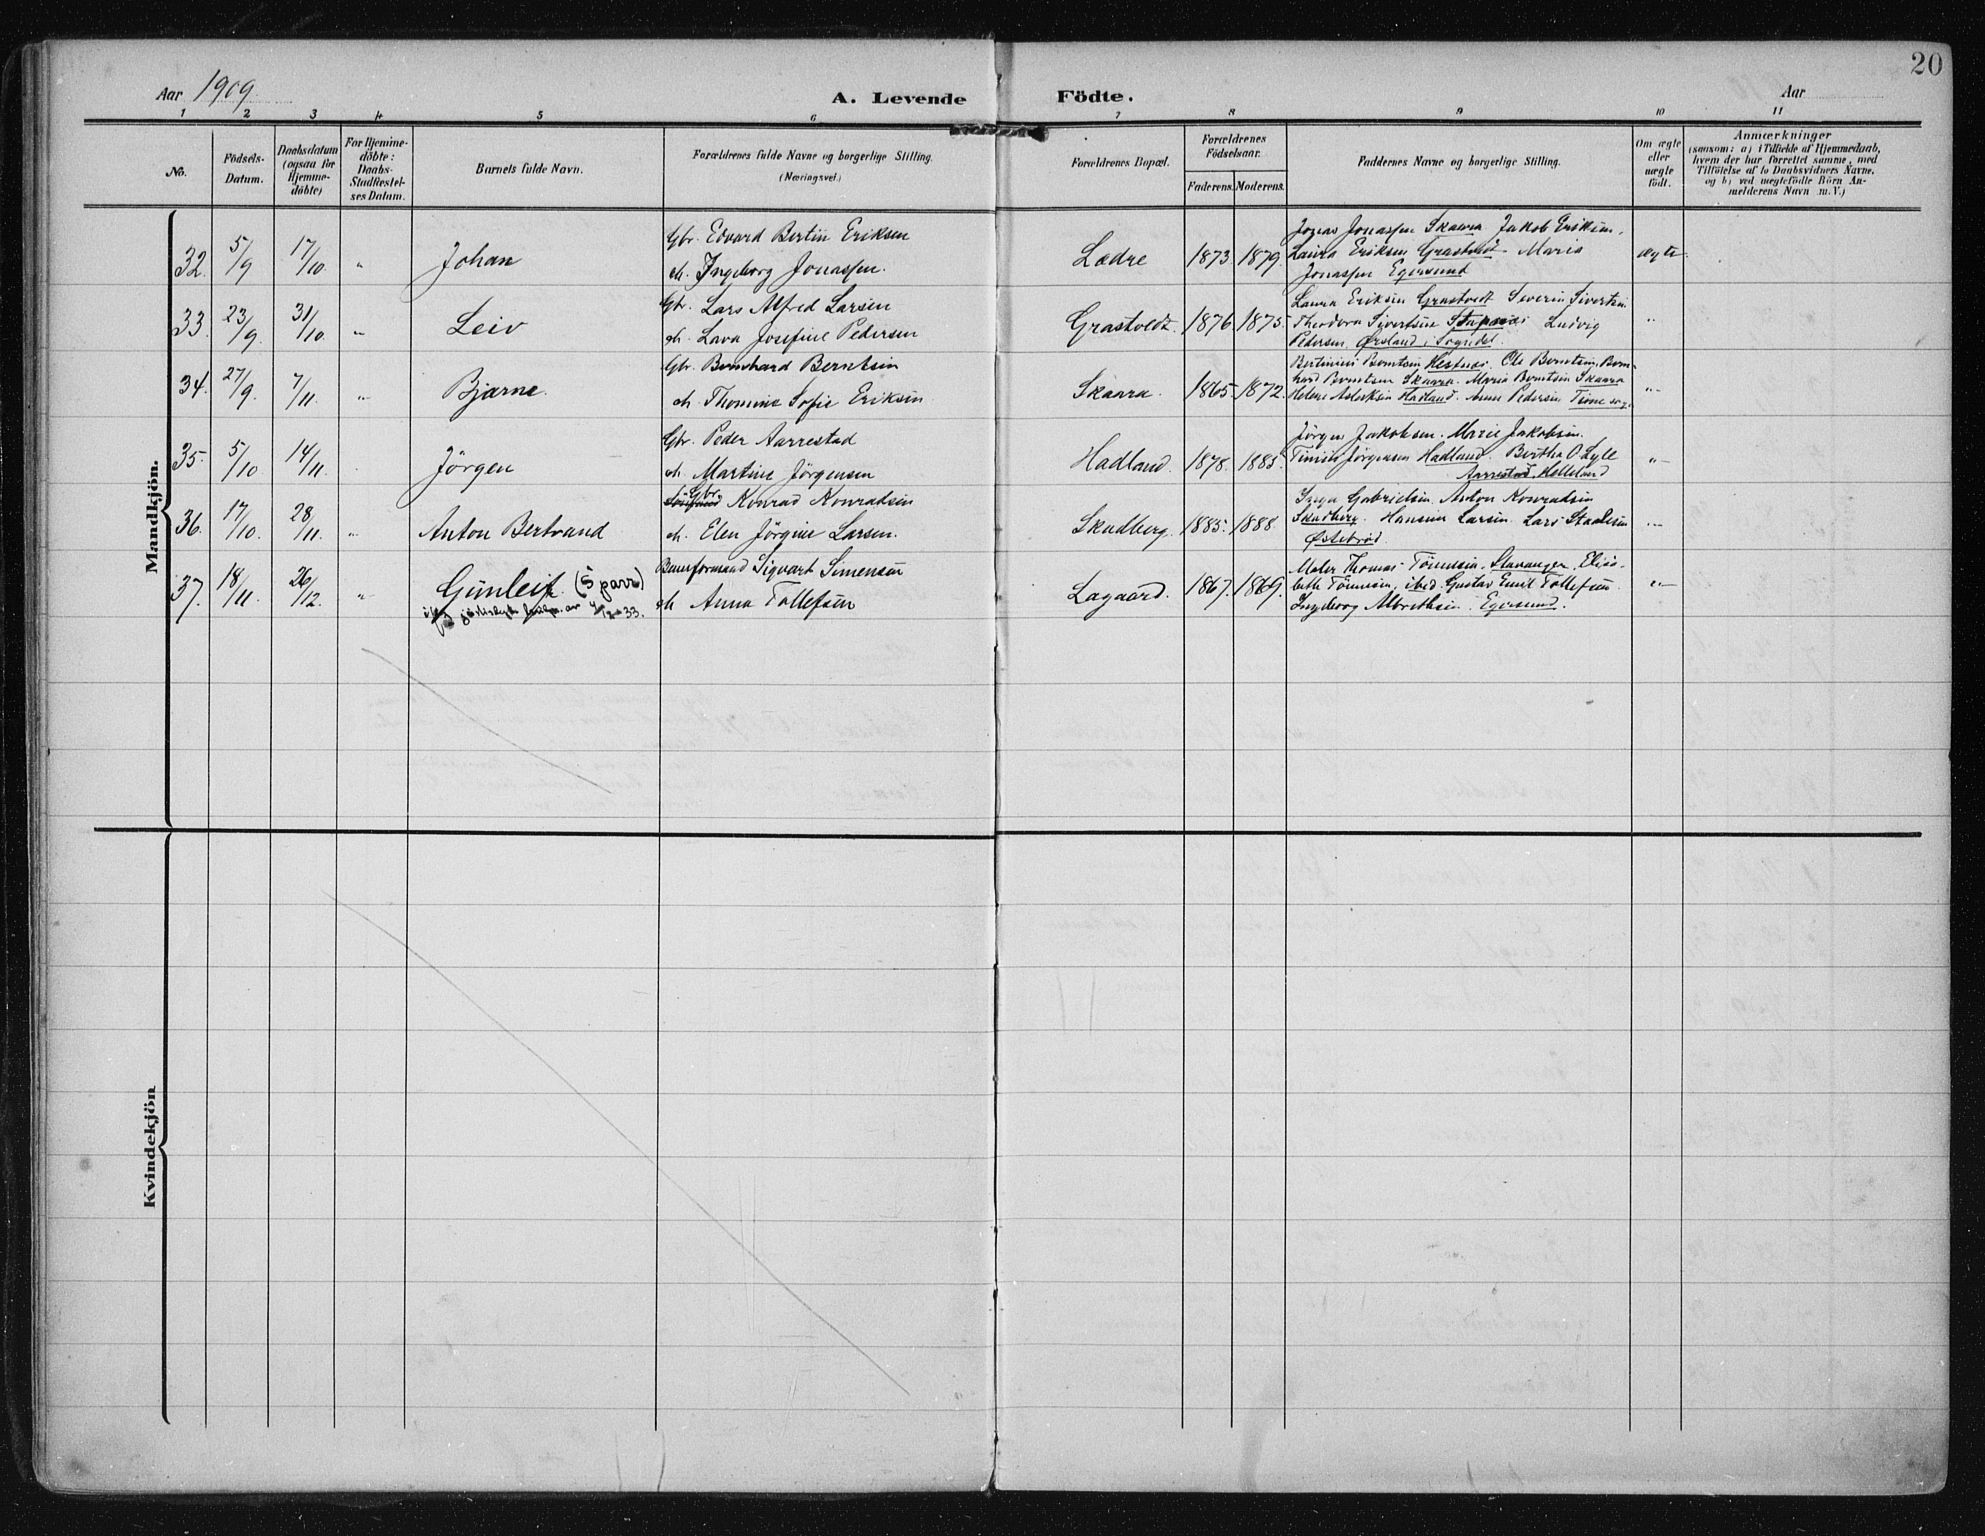 20
Aar 1909
A. Levende Födte.
Aar
1 2 3 4 5 6 7 8 9 10 11
No.
Födsels-Datum.
Daabsdatum (ogsaa for Hjemmedöbte)
For Hjemmedöbte: Daabs-Stadfæstelses Datum.
Barnets fulde Navn.
Forældrenes fulde Navne og borgerlige Stilling. (Næringsvei.)
Forældrenes Bopæl.
Forældrenes Födselsaar.
Faderens. Moderens.
Faddernes Navne og borgerlige Stilling.
Om ægte eller uægte födt.
Anmærkninger
(saasom: a) i Tilfælde af Hjemmedaab, hvem der har forrettet samme, med Tilföielse af to Daabsvidners Navne, og b) ved uægtefödte Börn Anmelderens Navn m. V.)
Mandkjön.
32. 5/9 17/10 " Johan
Gbr. Edvard Bertin Eriksen
og h. Ingeborg Jonassen.
Lædre 1873. 1879.
Jonas Jonassen Skaara Jakob Eriksen,
Laura Eriksen Grastvedt Maria
Jonassen Egersund
ægte
33. 23/9 31/10 " Leiv
Gbr. Lars Alfred Larsen
h. Lava Josefine Pedersen
Grastvedt. 1876. 1875.
Laura Eriksen Grastvedt Severin Sivertsen
Theodora Sivertsen Ludvig
Pedersen, Ørsland i Sogndal.
"
34. 27/9 7/11. " Bjarne.
Gbr. Bernhard Berntsen
h. Thomine Sofie Eriksen
Skaara. 1865. 1872.
Bertinius Berntsen Hestnes. Ole Berntsen, Bern-
hard Berntsen Skaara. Maria Berntsen Skaara
Helene Aslaksen Hadland. Anne Pedersen
"
35. 5/10 14/11. Jörgen
Gbr. Peder Aarrestad
h. Martine Jörgensen
Hadland. 1878. 1885.
Jörgen Jakobsen. Marie Jakobsen.
Jörgensen Hadland. Bertha O. Lyll
Aarrestad, Helleland
"
36. 17/10. 28/11. " Anton Bertrand
Gbr. Konrad Konradsen
h. Elen Jörgine Larsen.
Skadberg. 1885. 1888
Inga Gabrielsen Anton Konradsen
Skadberg. Hansine Larsen. Lars Staalesen
Østebrød.
"
37. 18/11. 26/12. " Gunleif (5 parr)
Baneformand Sigvart Simensen
h. Anna Tollefsen
Lagaard. 1867. 1869.
Maler Thomas Tönnesen, Stavanger, Elisa-
beth Tönnesen, ibid. Gustav Emil Tollefsen
Ingeborg Albretsen. Egersund.
"
Kvindekjön